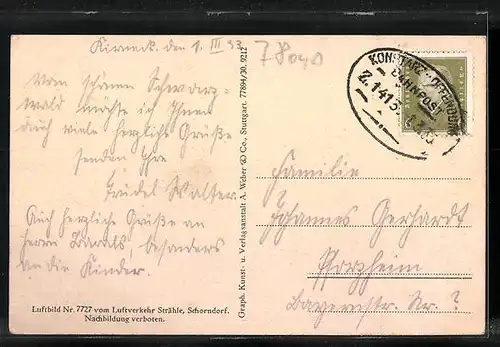 Kirneck, den 1. III 33
78090
Vom schönen Schwarz-
wald möchte ich Ihnen
auch viele herzliche Grüße
senden Ihre
Friedel Walter.
Auch herzliche Grüße an
Herrn besonders
an die Kinder.
Luftbild Nr. 7727 vom Luftverkehr Strähle, Schorndorf.
Nachbildung verboten.
Graph. Kunst- u. Verlagsanstalt A. Weber & Co., Stuttgart. 77894/30. 9212
KONSTANZ - OFFENBURG
BAHNPOST
Z.1413
Familie
Johannes Gerhardt
Pforzheim
Bayernstr. Nr. ?